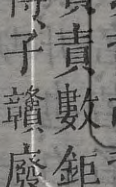 責數鉅
子贛廢